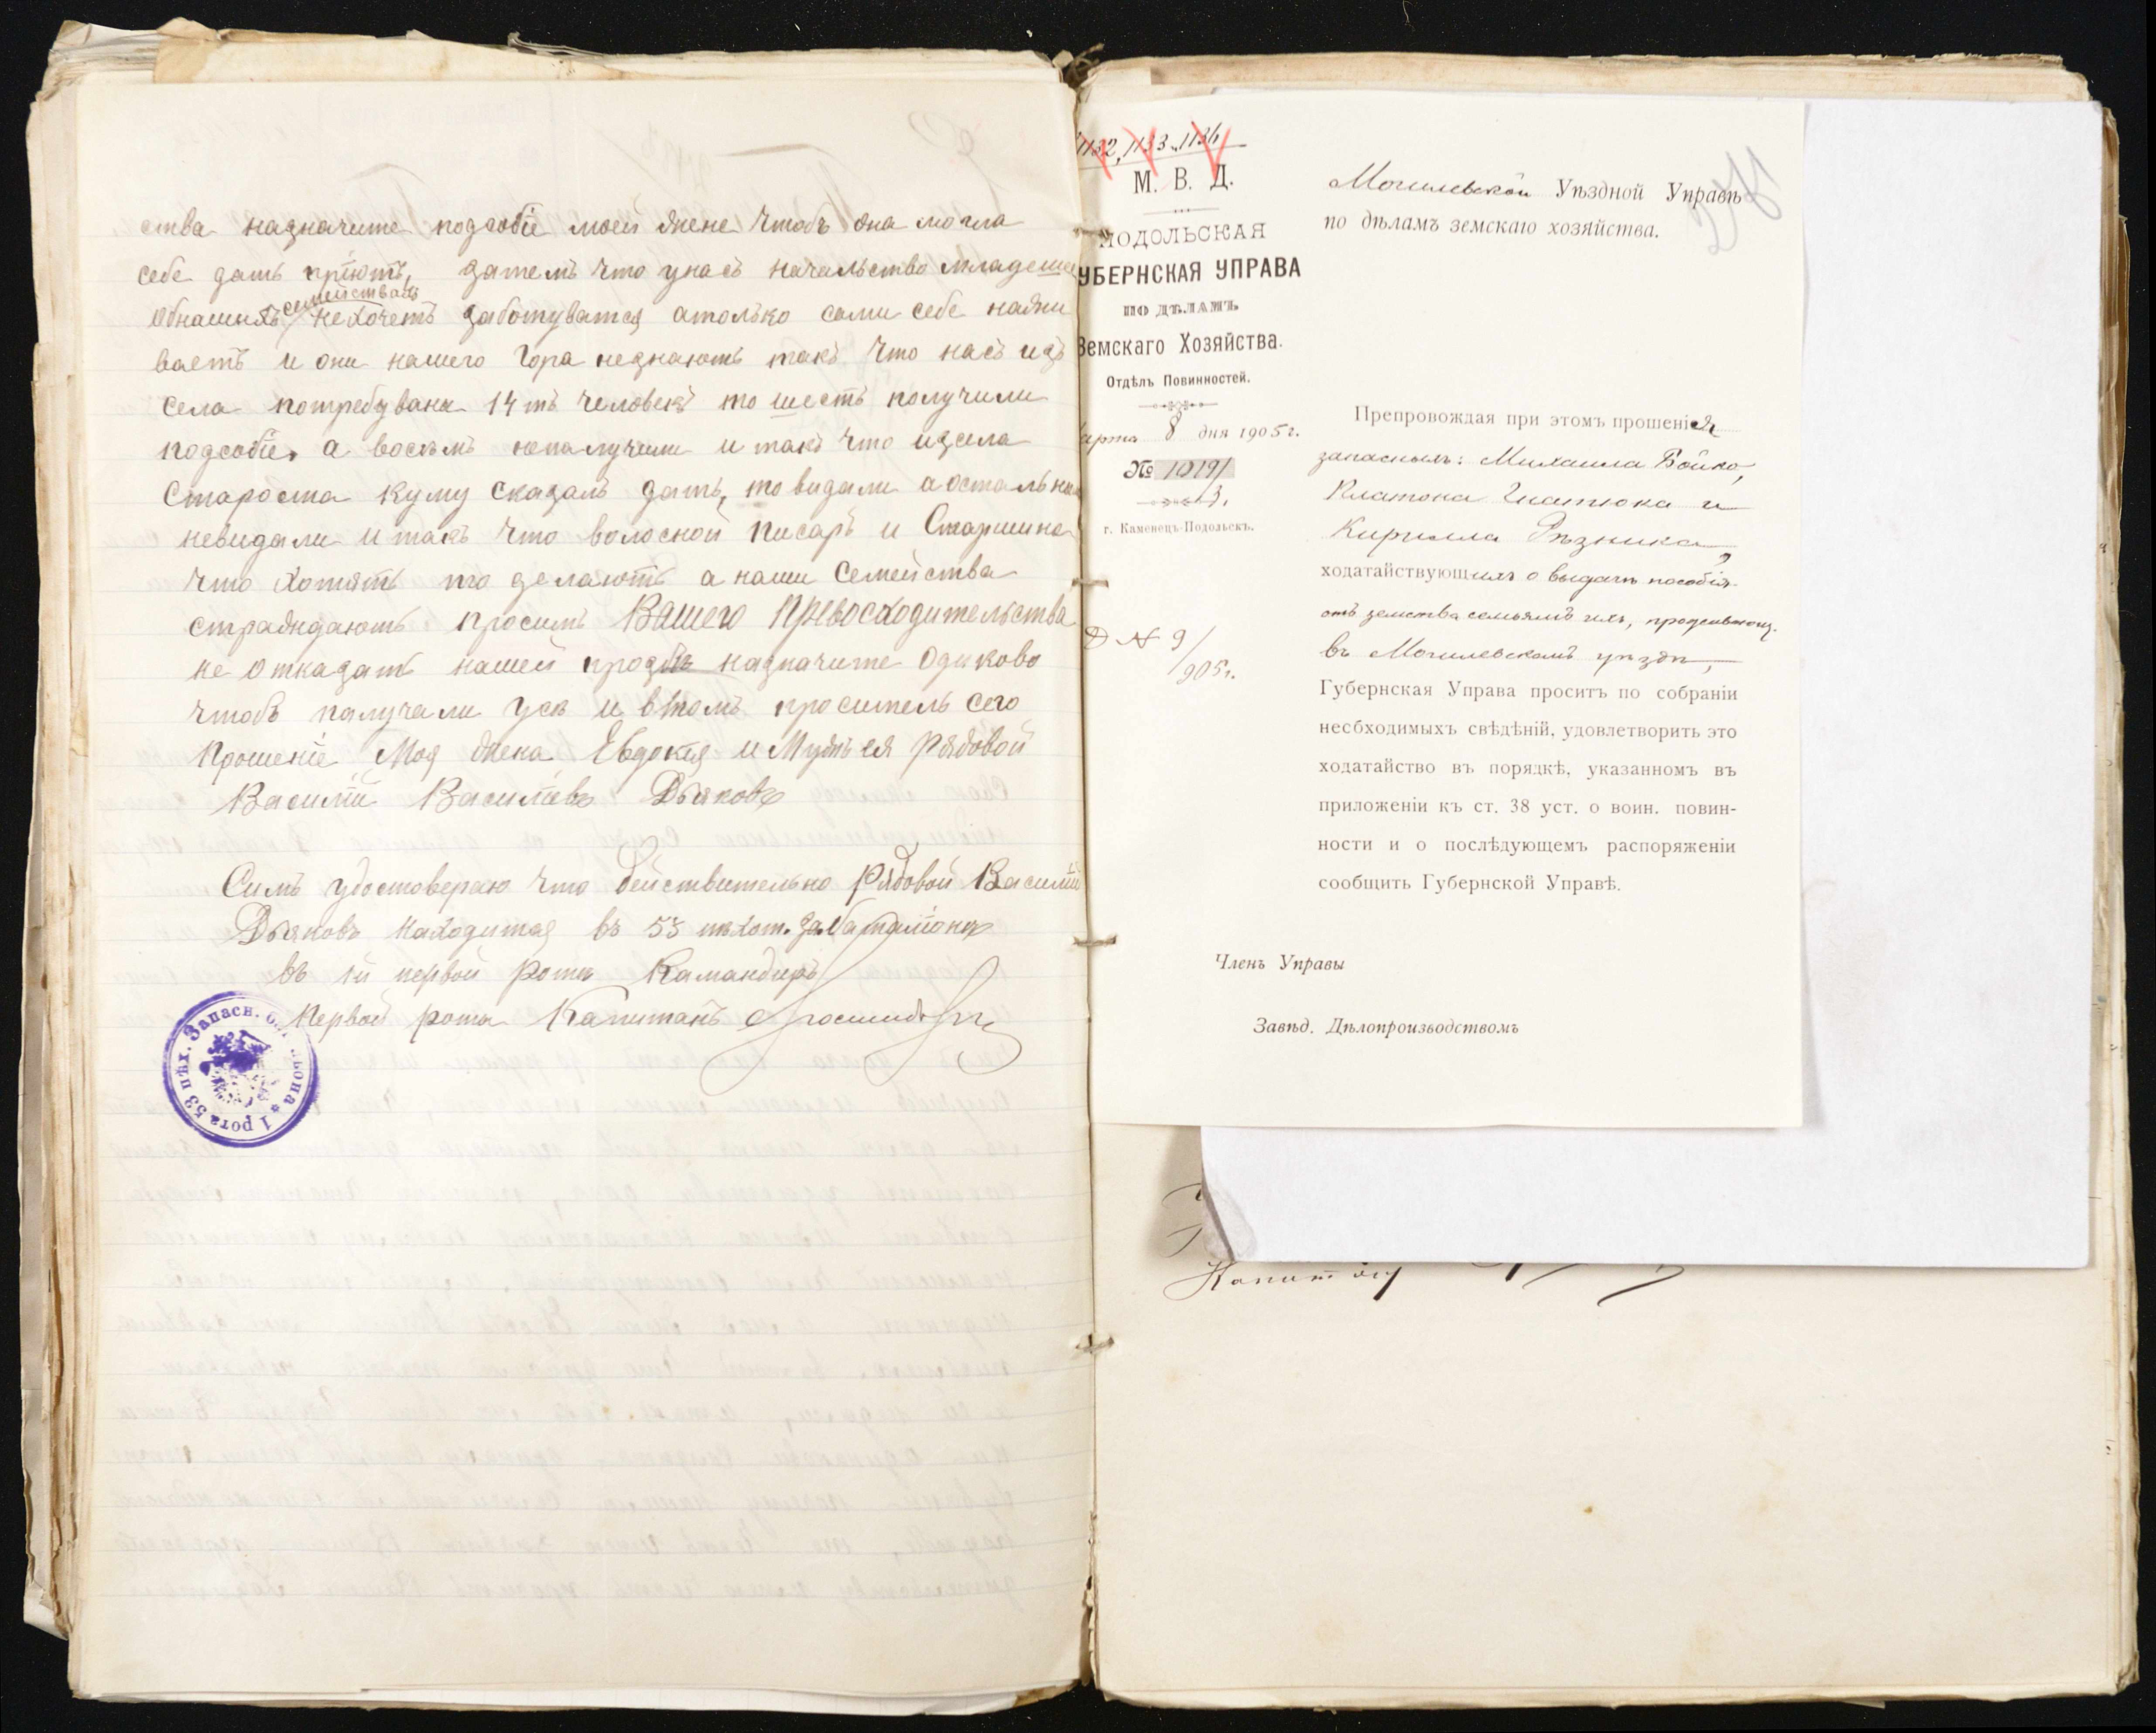 ства назначите подсобіе моей жене Чтобъ она могла
себе дать пріютъ, затемъ что унасъ начальство младеше
обнашихъ семействахъ нехочетъ заботуватся атолько сами себе нажи
ваетъ и они нашего Гора незнаютъ такъ Что насъ изъ
села потребувана 14ть человекъ то шесть получили
подсобіе, а восемъ неполучили и такъ что изсела
Староста кому сказалъ дать, то видали аостальн
невидали итакъ Что волосной писарь и Старшина
что хотятъ то делаютъ а наши Семейства
страждаютъ просимъ Вашего Превосходительства
не отказать нашей прозбъ назначите Одиково
Чтобъ палучали усъ и втомъ проситель сего
Прошеніе Моя жена Евдокія и Мужъ ея рядовой
Василій Василіевъ Дьяковъ
Симъ удостовераю Что действительно Рядовой Василій
Дьяковъ находится въ 53 пѣхот. за. баталіонъ
въ 1й первой Ротъ Камандиръ
Первой роты Капитанъ
53 пѣх. Запасн. ба ліона * 1 рота
1132, 1133 и 1134
М. В. Д.
ПОДОЛЬСКАЯ
УБЕРНСКАЯ УПРАВА
ПО ДѢЛАМЪ
Земскаго Хозяйства.
Отдѣлъ Повинностей.
арта 8 дня 1905 г.
№ 10191
3.
г. Каменецъ-Подольскъ.
Д № 9/905 г.
Могилевской Уѣздной Управѣ
по дѣламъ земскаго хозяйства.
Препровождая при этомъ прошенія
запасныхъ: Михаила Бойко,
Платона Гнатюка и
Кирилла Рѣзника,
ходатайствующихъ о выдачѣ пособія
отъ земства семьямъ ихъ, проживающ.
въ Могилевскомъ уѣздѣ,
Губернская Управа проситъ по собраніи
несбходимыхъ свѣдѣній, удовлетворить это
ходатайство въ порядкѣ, указанномъ въ
приложеніи къ ст. 38 уст. о воин. повин-
ности и о послѣдующемъ распоряженіи
сообщить Губернской Управѣ.
Членъ Управы
Завѣд. Дѣлопроизводствомъ
Капитанъ